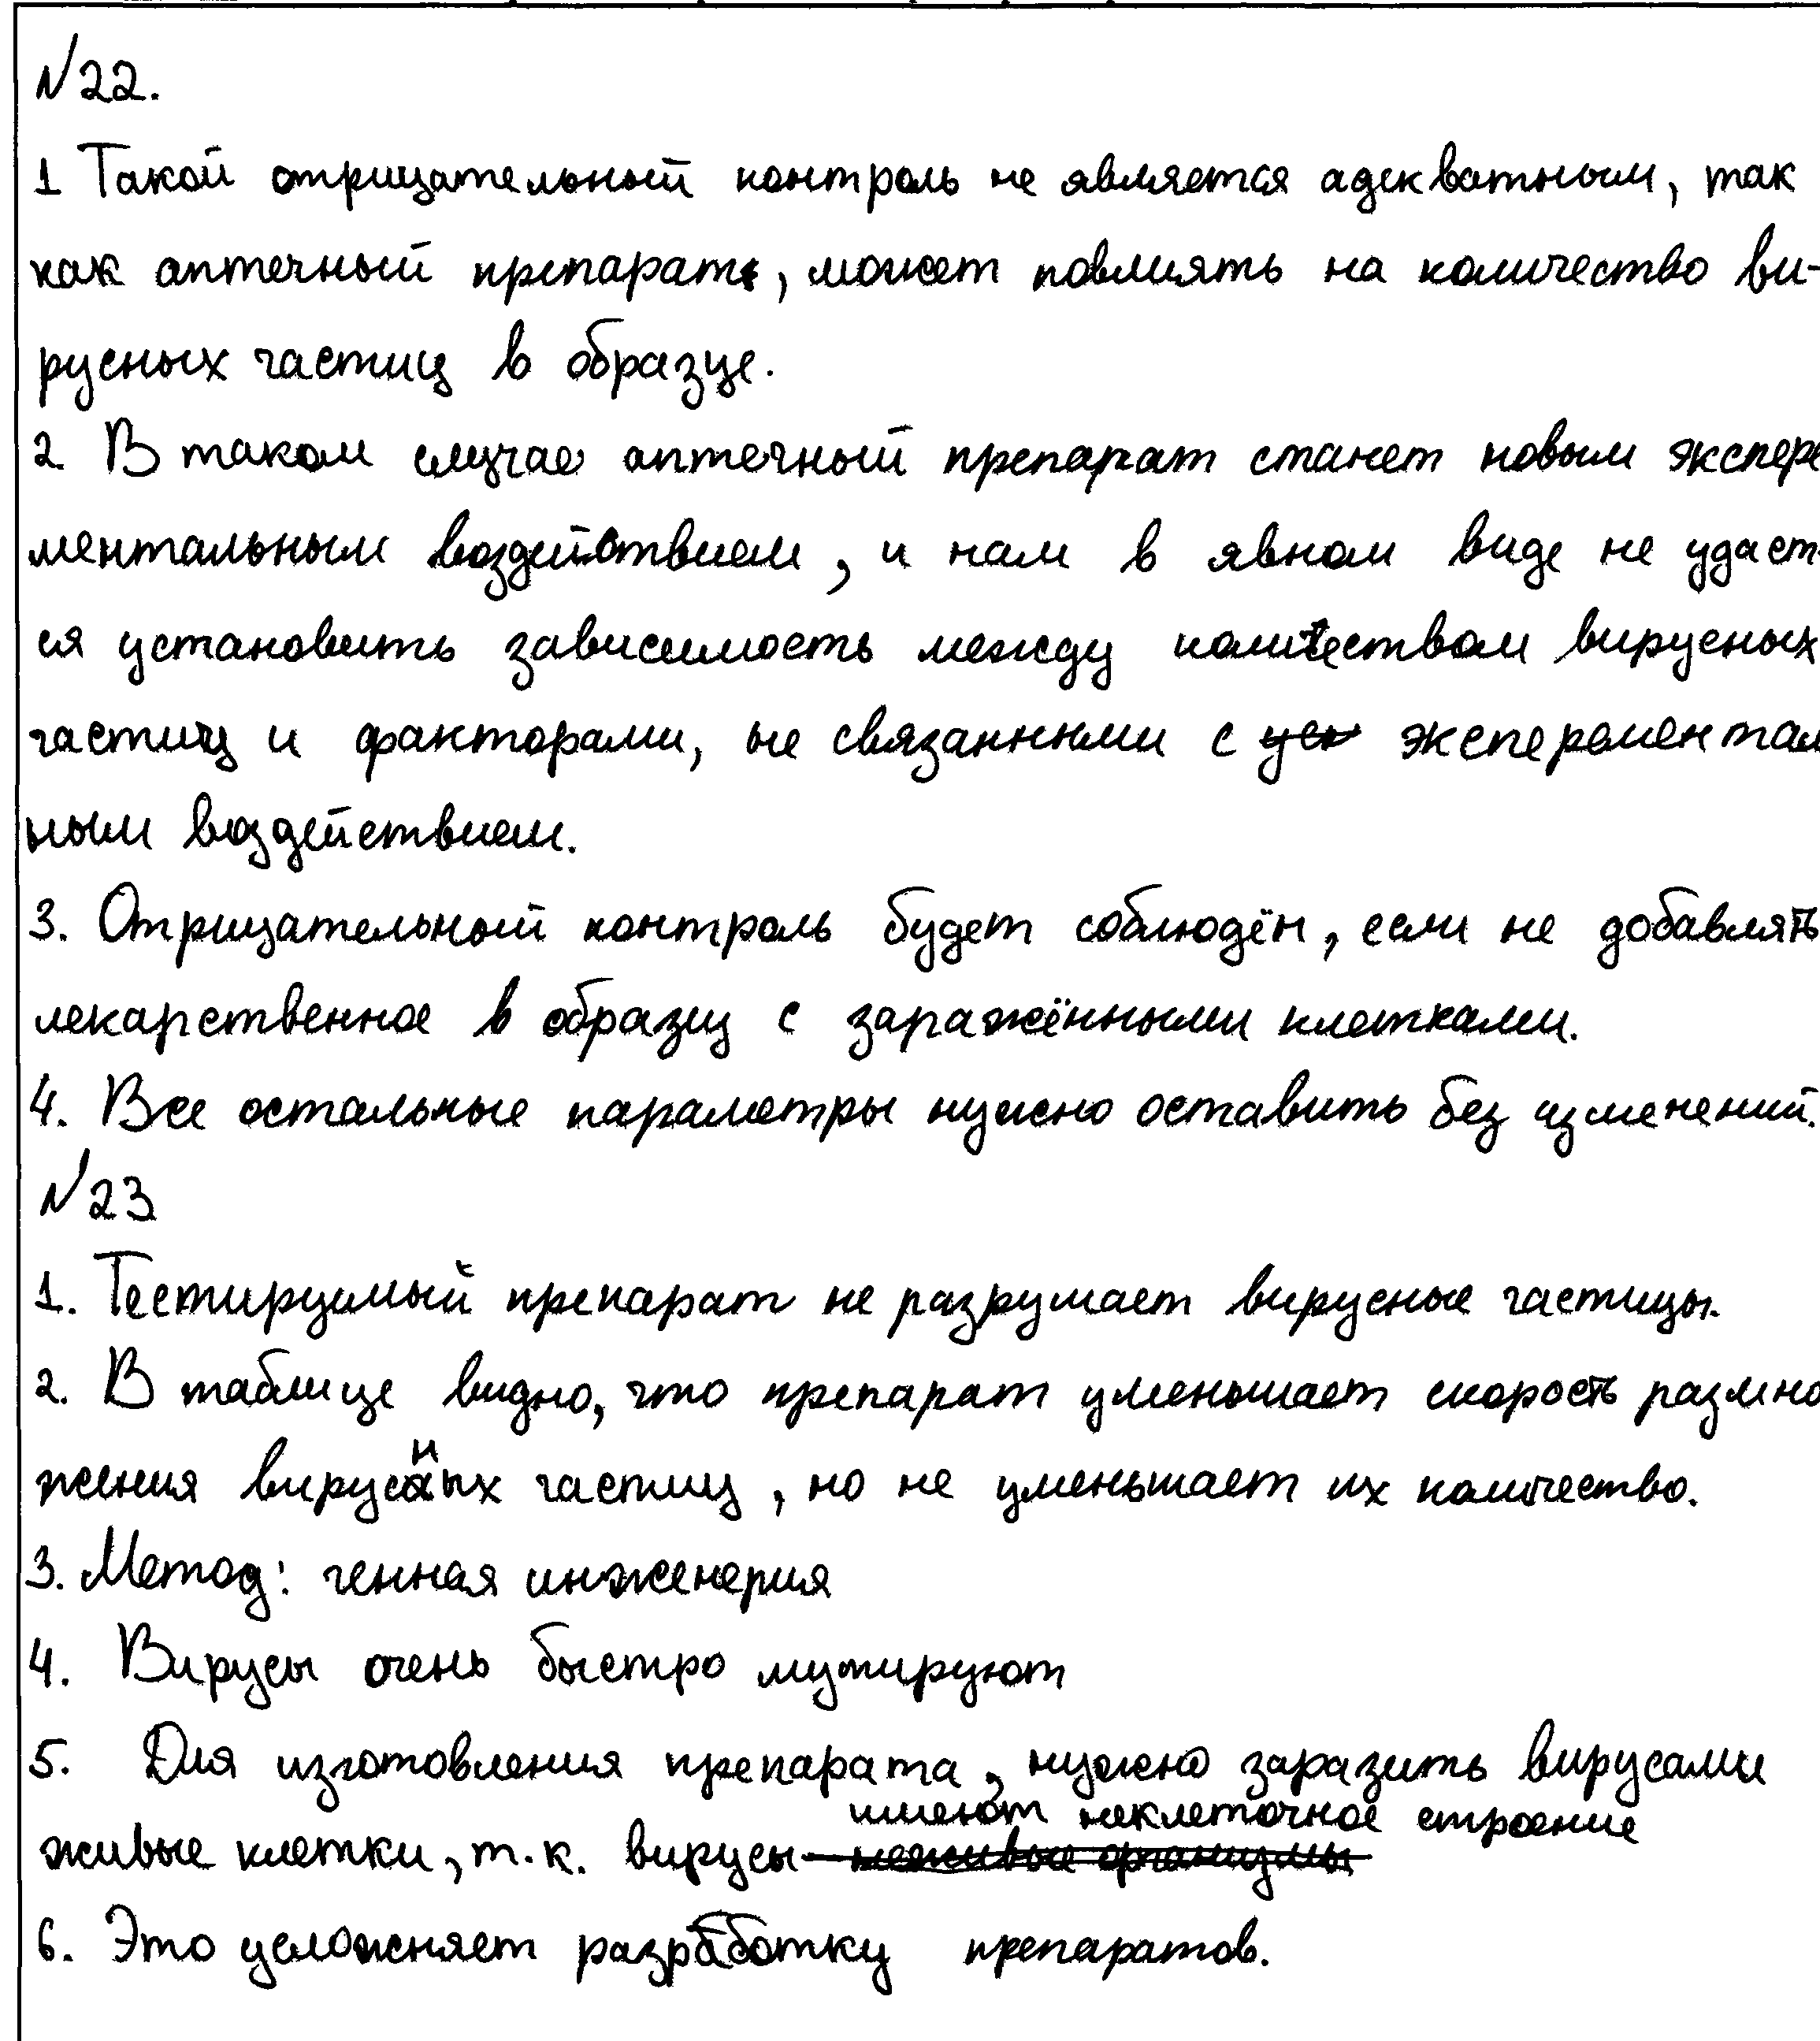 №22.
1 Такой отрицательный контроль не является адекватным, так
как аптечный препарат, может повлиять на количество ви-
русных частиц в образце.
2. В таком случае аптечный препарат станет новым экспере
ментальным воздействием, и нам в явном виде не удаст-
ся установить зависимость между количеством вирусных
частиц и факторами, не связанными с эксперементал
ным воздействием.
3. Отрицательный контроль будет соблюдён, если не добавлять
лекарственное в образец с заражёнными клетками.
4. Все остальные параметры нужно оставить без изменений.
№23
1. Тестируемый препарат не разрушает вирусные частицы.
2. В таблице видно, что препарат уменьшает скорость размно
жения вирусных частиц, но не уменьшает их количество.
3. Метод: генная инженерия
4. Вирусы очень быстро мутируют
5. Для изготовления препарата, нужно заразить вирусами
живые клетки, т.к. вирусы имеют неклеточное строение
6. Это усложняет разработку препаратов.